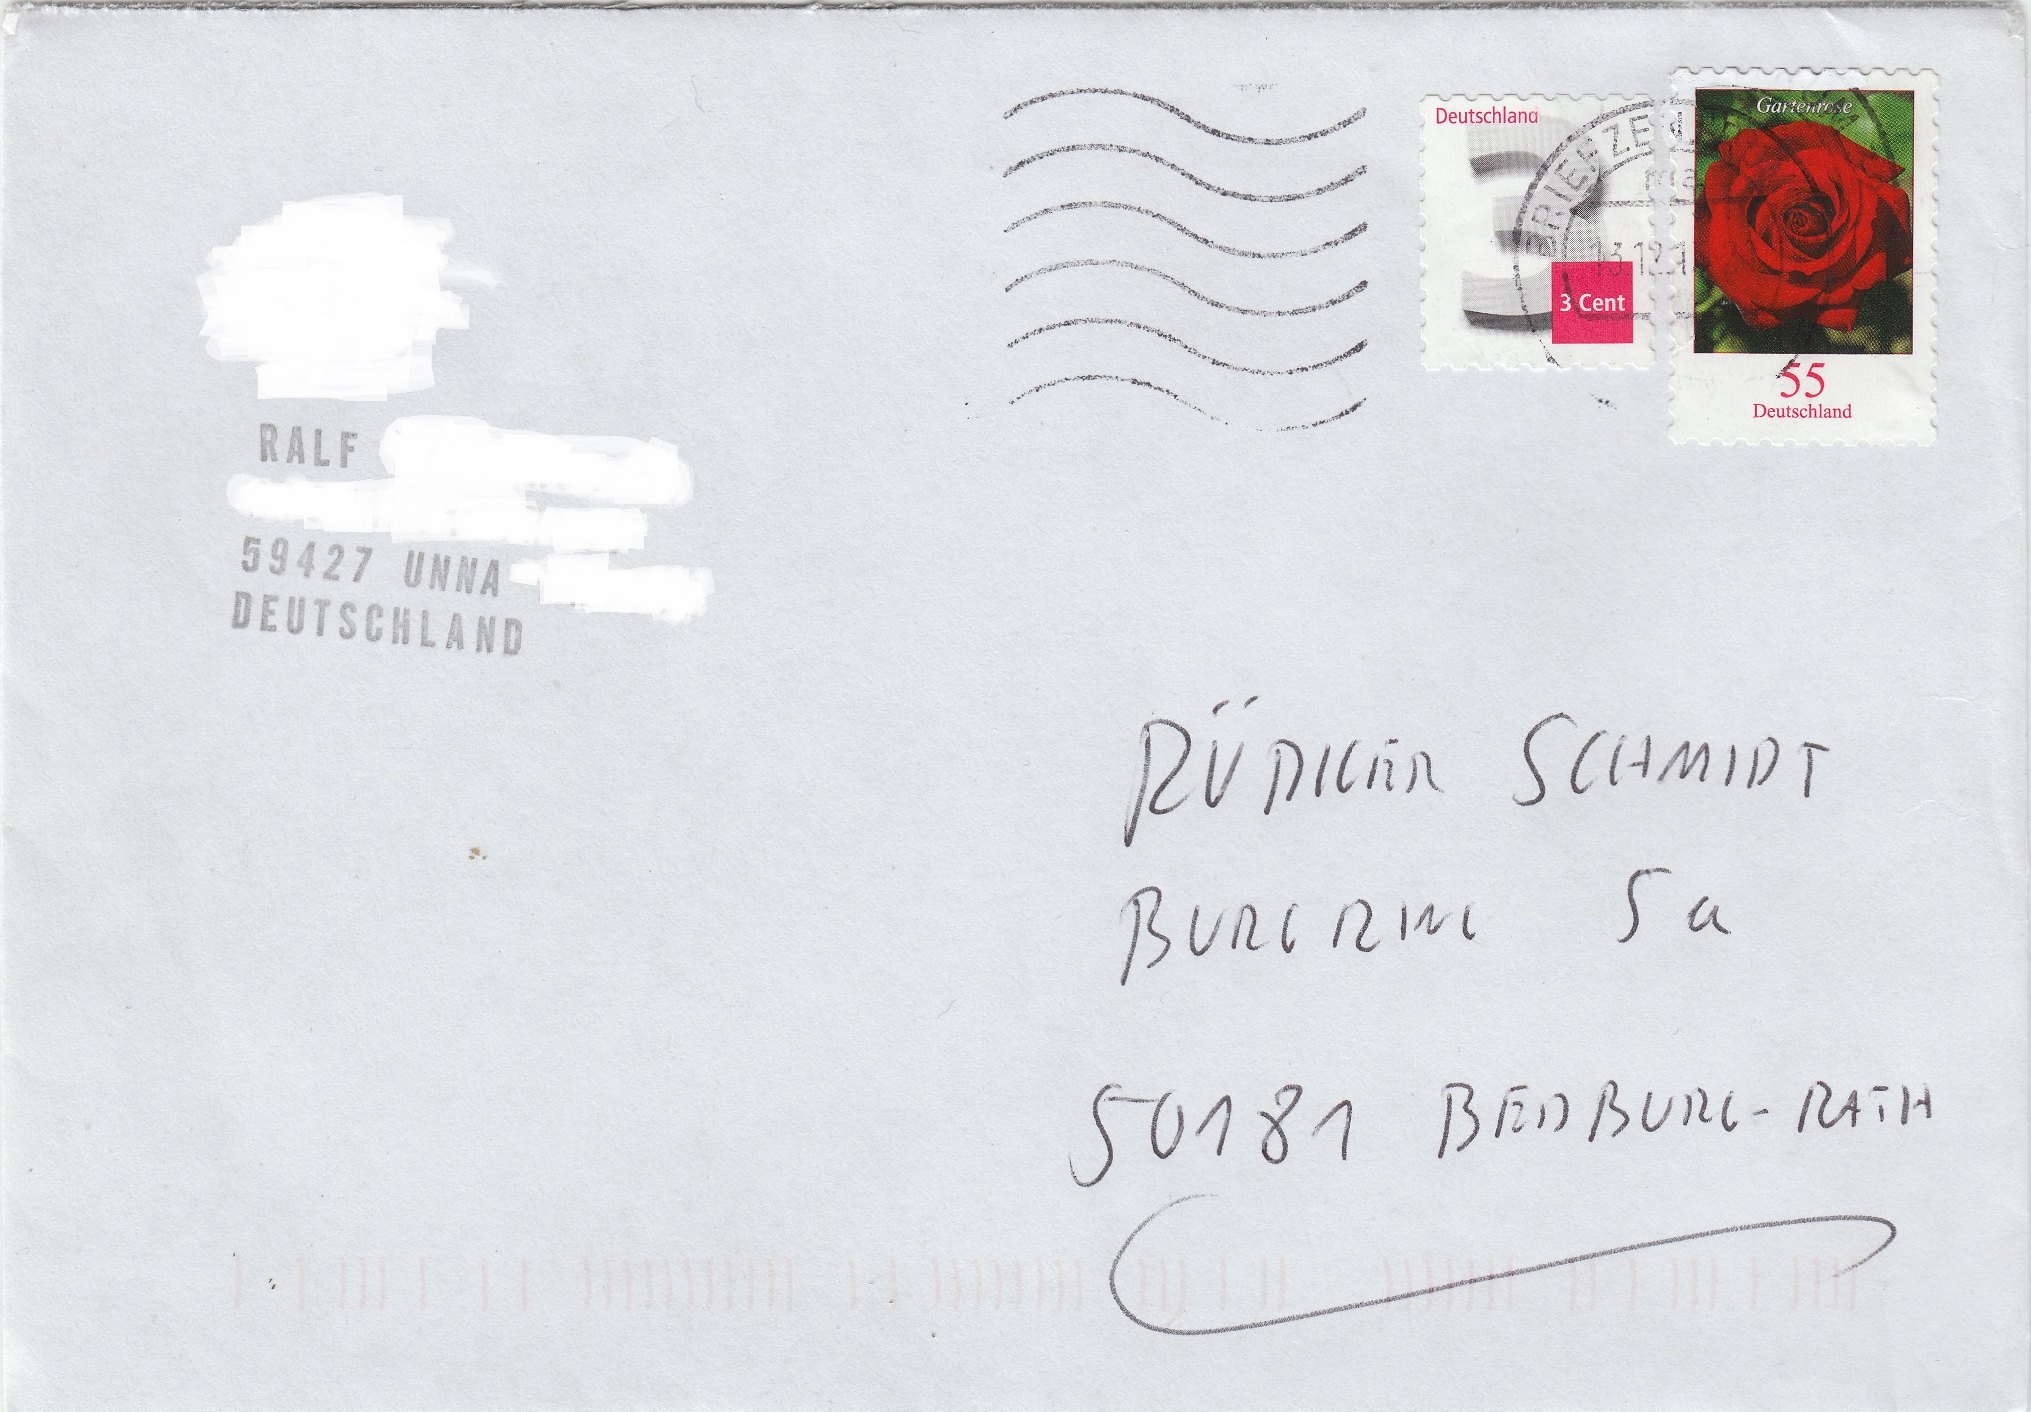 Deutschland
3 Cent
Gartenrose
55
Deutschland
BRIEFZE
13.12.1
RALF
59427 UNNA
DEUTSCHLAND
RÜDIGER SCHMIDT
BURGRING 5a
50181 BEDBURG-RATH